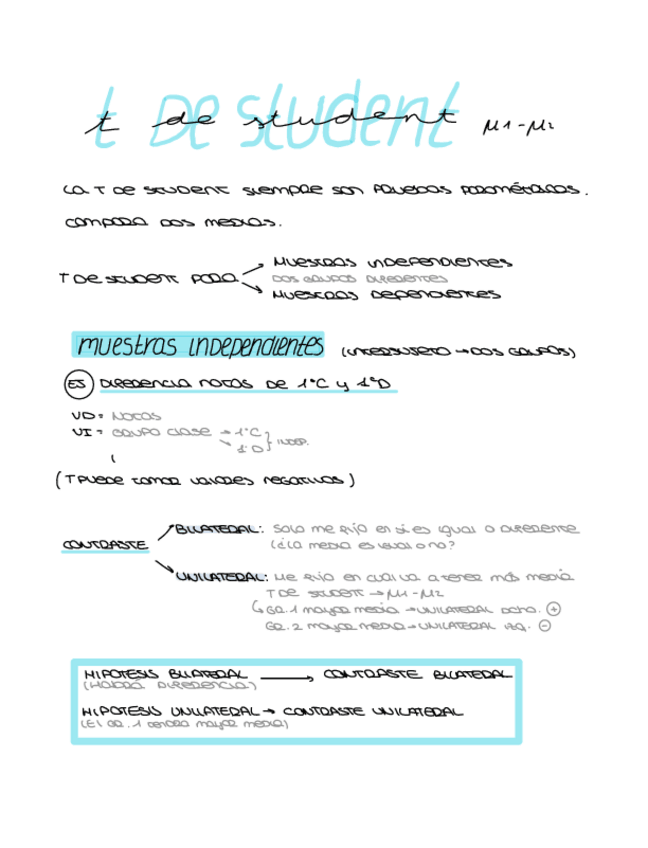 t de student μ1-μ2
La T de student siempre son pruebas paramétricas.
compara dos medias.
T de student para
muestras independientes
dos grupos diferentes
muestras dependientes
muestras independientes (intersujeto → dos grupos)
EJ Diferencia notas de 1ºC y 1ºD
VD = Notas
VI = Grupo clase → 1ºC
→ 1ºD } indep.
(T puede tomar valores negativos)
CONTRASTE
BILATERAL: Solo me fijo en si es igual o diferente
(¿La media es igual o no?
UNILATERAL: Me fijo en cual va a tener más media
T de student → μ1-μ2
Gr.1 mayor media → UNILATERAL dcha. +
Gr. 2 mayor media → UNILATERAL izq. -
HIPOTESIS BILATERAL → CONTRASTE BILATERAL
(Habrá diferencia)
HIPOTESIS UNILATERAL → CONTRASTE UNILATERAL
(El Gr. 1 tendrá mayor media)